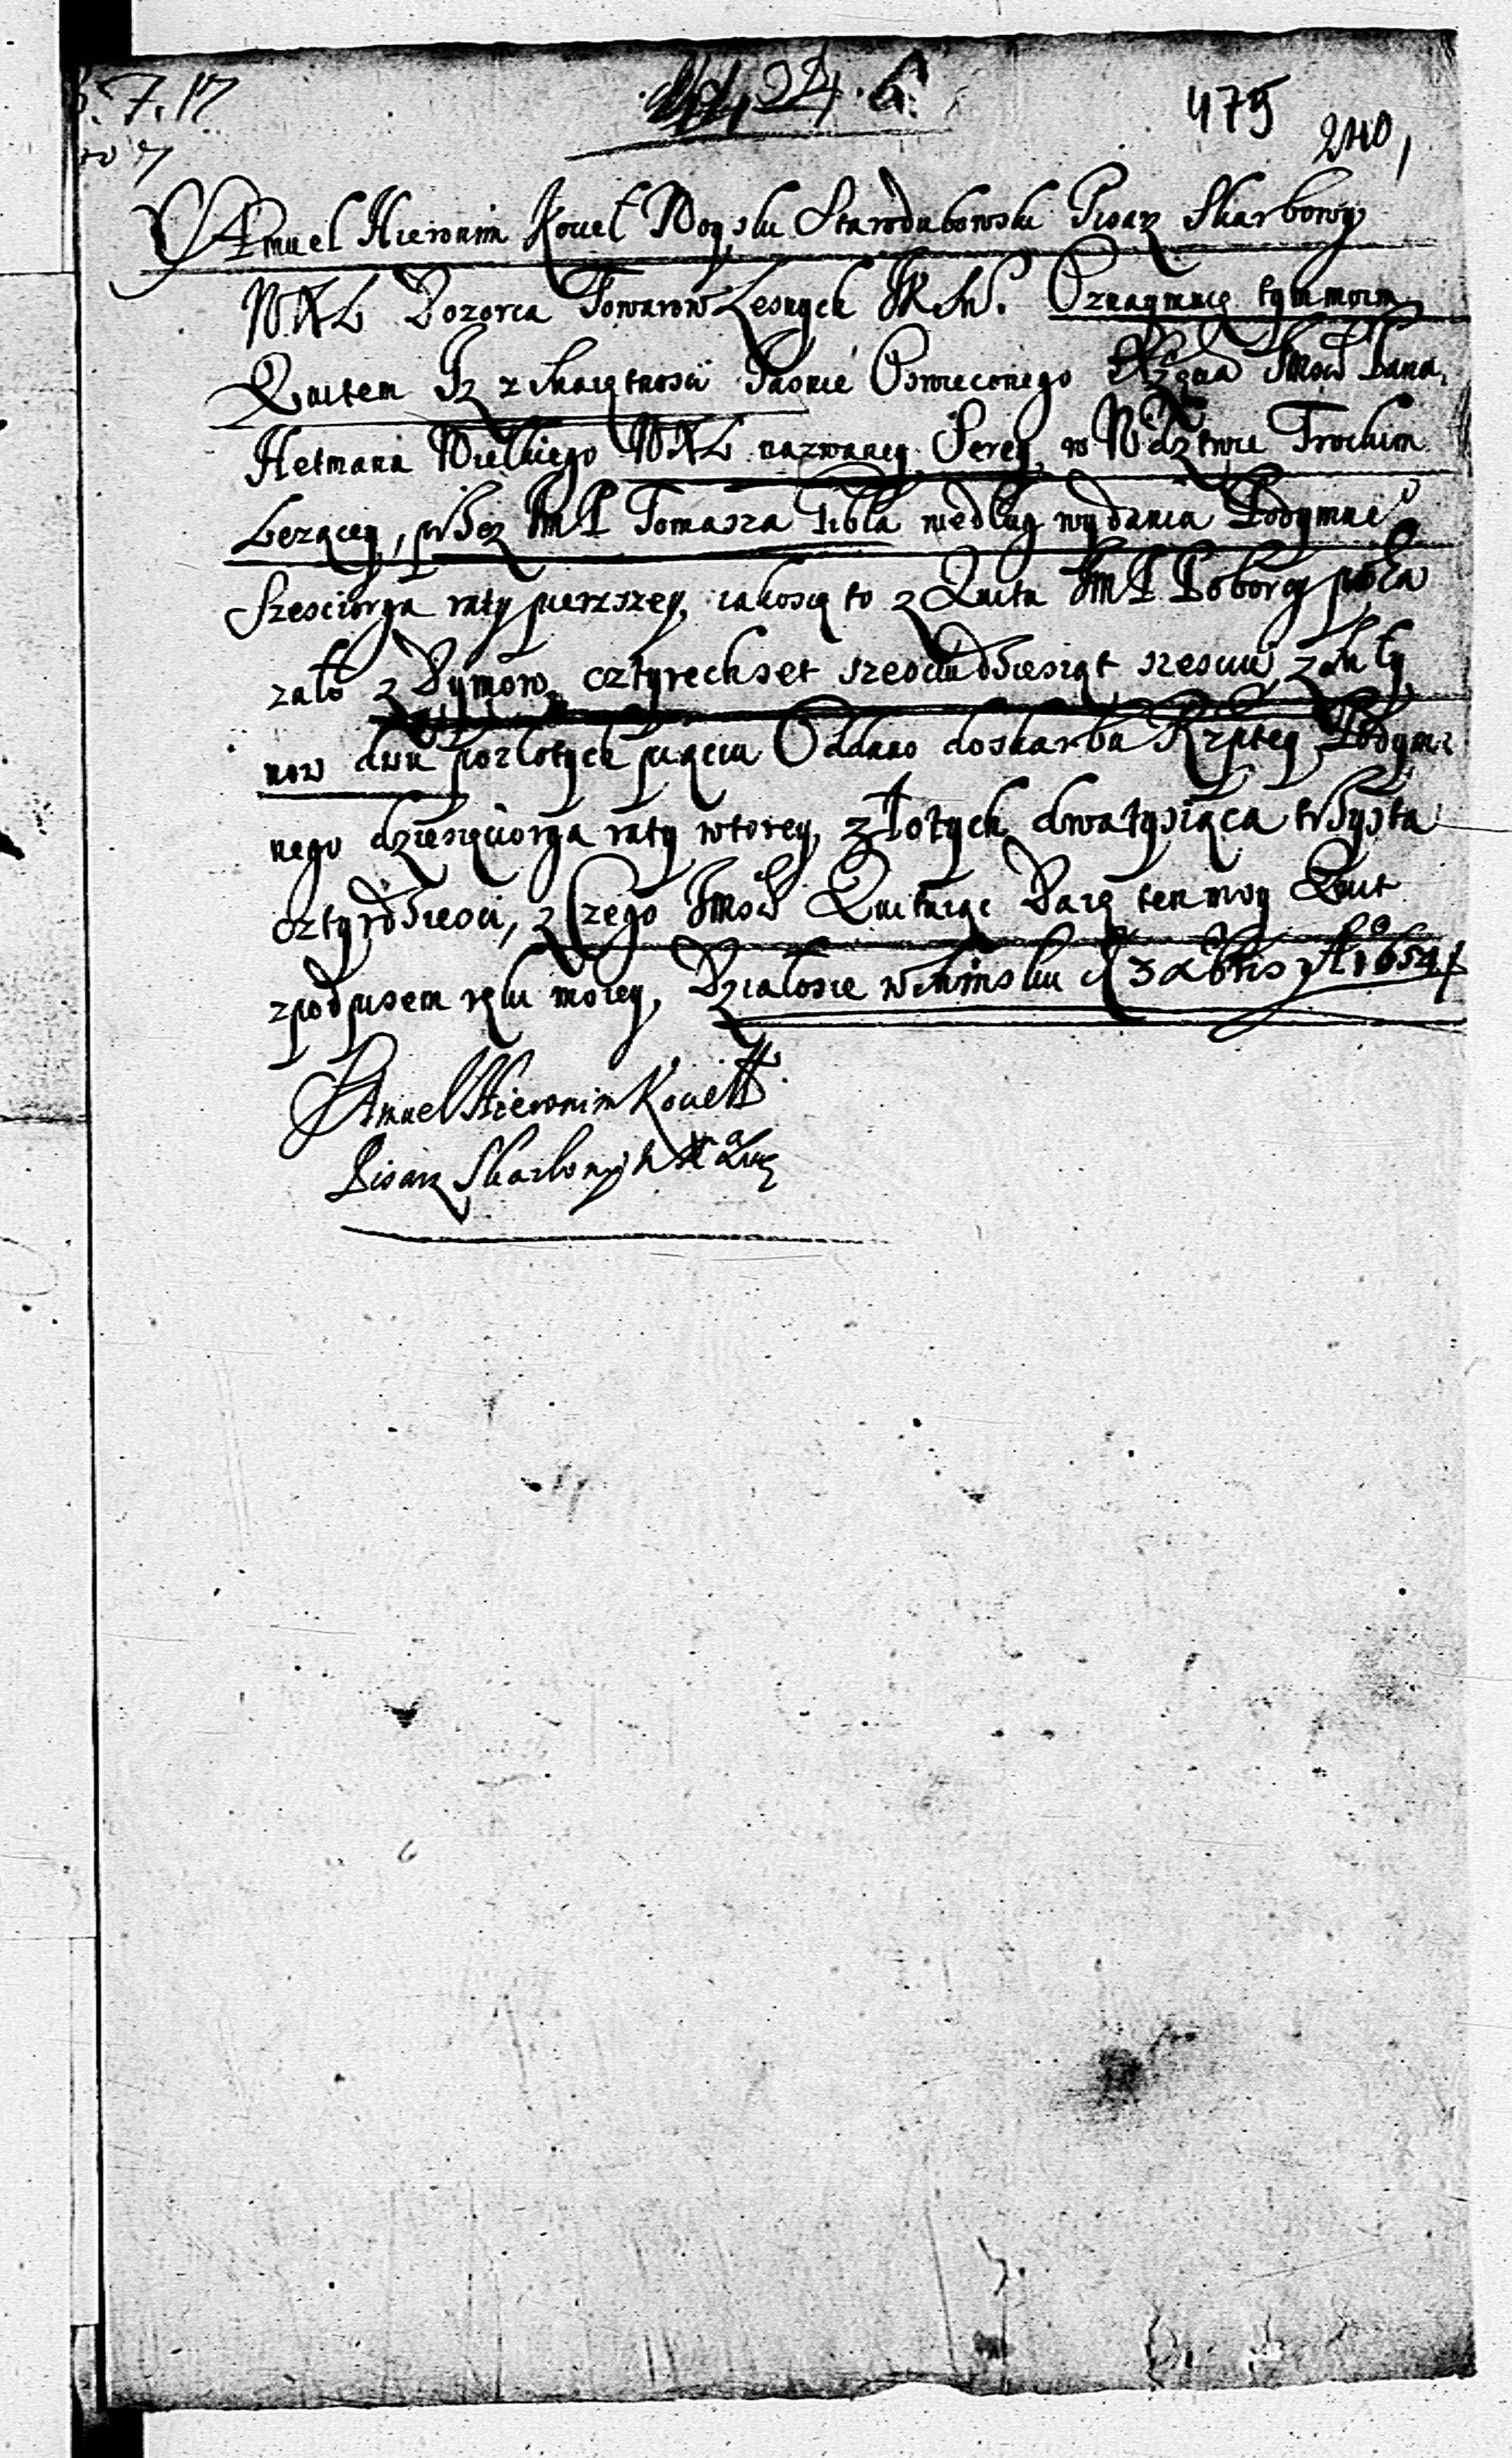 7. 17
475
240
Samuel Hieronim Kociel Woyski Starodubowski Pisarz Skarbowy
WXL Dozorca Towarow Lesnych JKM. Oznaymuię tym moim
Quitem Iz z Maiętnosci Jasnie Oswieconego Xżęcia Jmości Pana
Hetmana Wielkiego WXL nazwaney Serey w Wdztwie Trockim
Lezącey, przez JmP Tomasza według wydania Podymne
Szesciorga raty pierszey, iakosię to z Quitu JmP Poborcy poka
zało z Dymow czterechset szesciudziesiąt szesciu, z Mły
now dwu pozłotych pięciu Oddano doskarbu Rzptey Podym
nego dziesięciorga raty wtorey, złotych dwatysiąca trzysta
cztyrdziesci, z Czego Jmości Quituiąc Daię ten moy Quit
zpodpisem ręki moiey, Działosie w Minsku 3 Xbris A° 1654
Samuel Hieronim Kociełł
Pisarz Skarbowy W X Lit